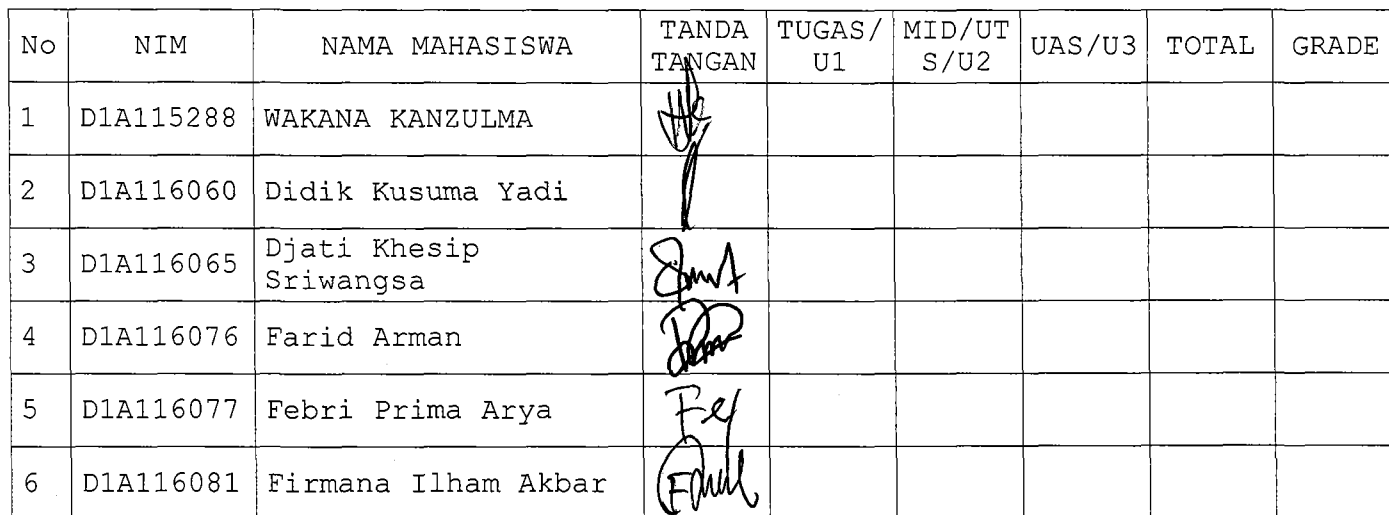 No NIM NAMA MAHASISWA TANDA TANGAN TUGAS/U1 MID/UTS/U2 UAS/U3 TOTAL GRADE
1 D1A115288 WAKANA KANZULMA
2 D1A116060 Didik Kusuma Yadi
3 D1A116065 Djati Khesip
Sriwangsa
4 D1A116076 Farid Arman
5 D1A116077 Febri Prima Arya
6 D1A116081 Firmana Ilham Akbar